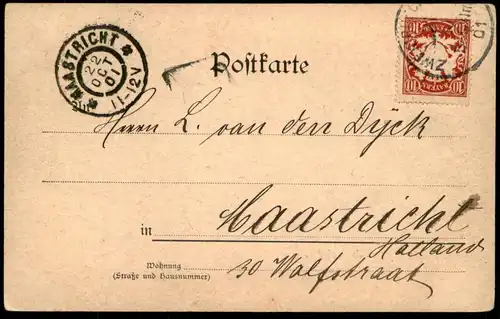 MAASTRICHT
22
OCT
01
11-12V
Postkarte
01
ZWEI
10 10
BAYERN
10 10
Herrn L. van den Dijck
in Maastricht
Holland
Wohnung
(Straße und Hausnummer)
30 Wolfstraat